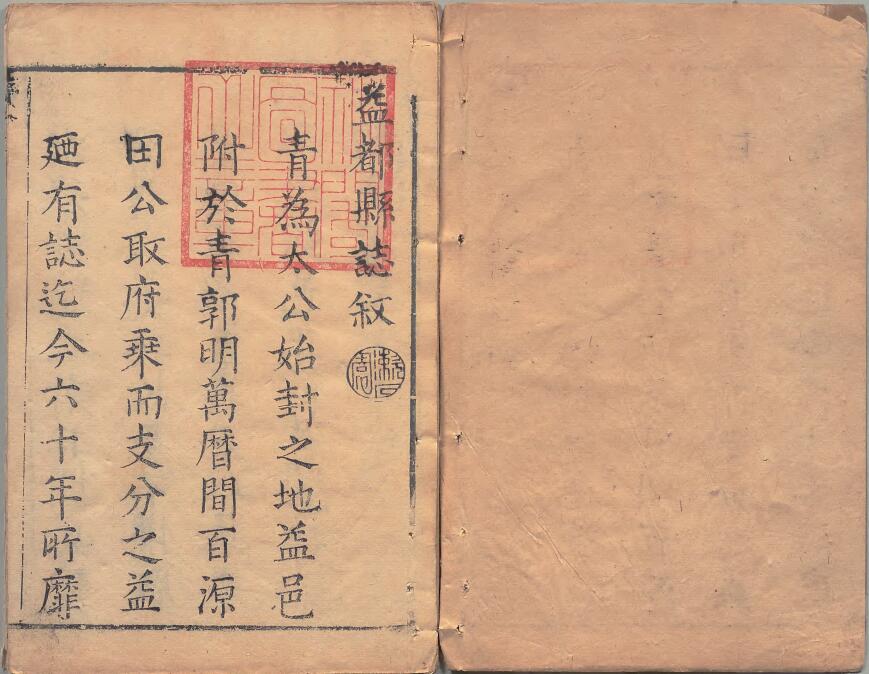 益都縣誌敘
青為太公始封之地益邑
附於青郭明萬曆間百源
田公取府乗而支分之益
廼有誌迄今六十年所靡